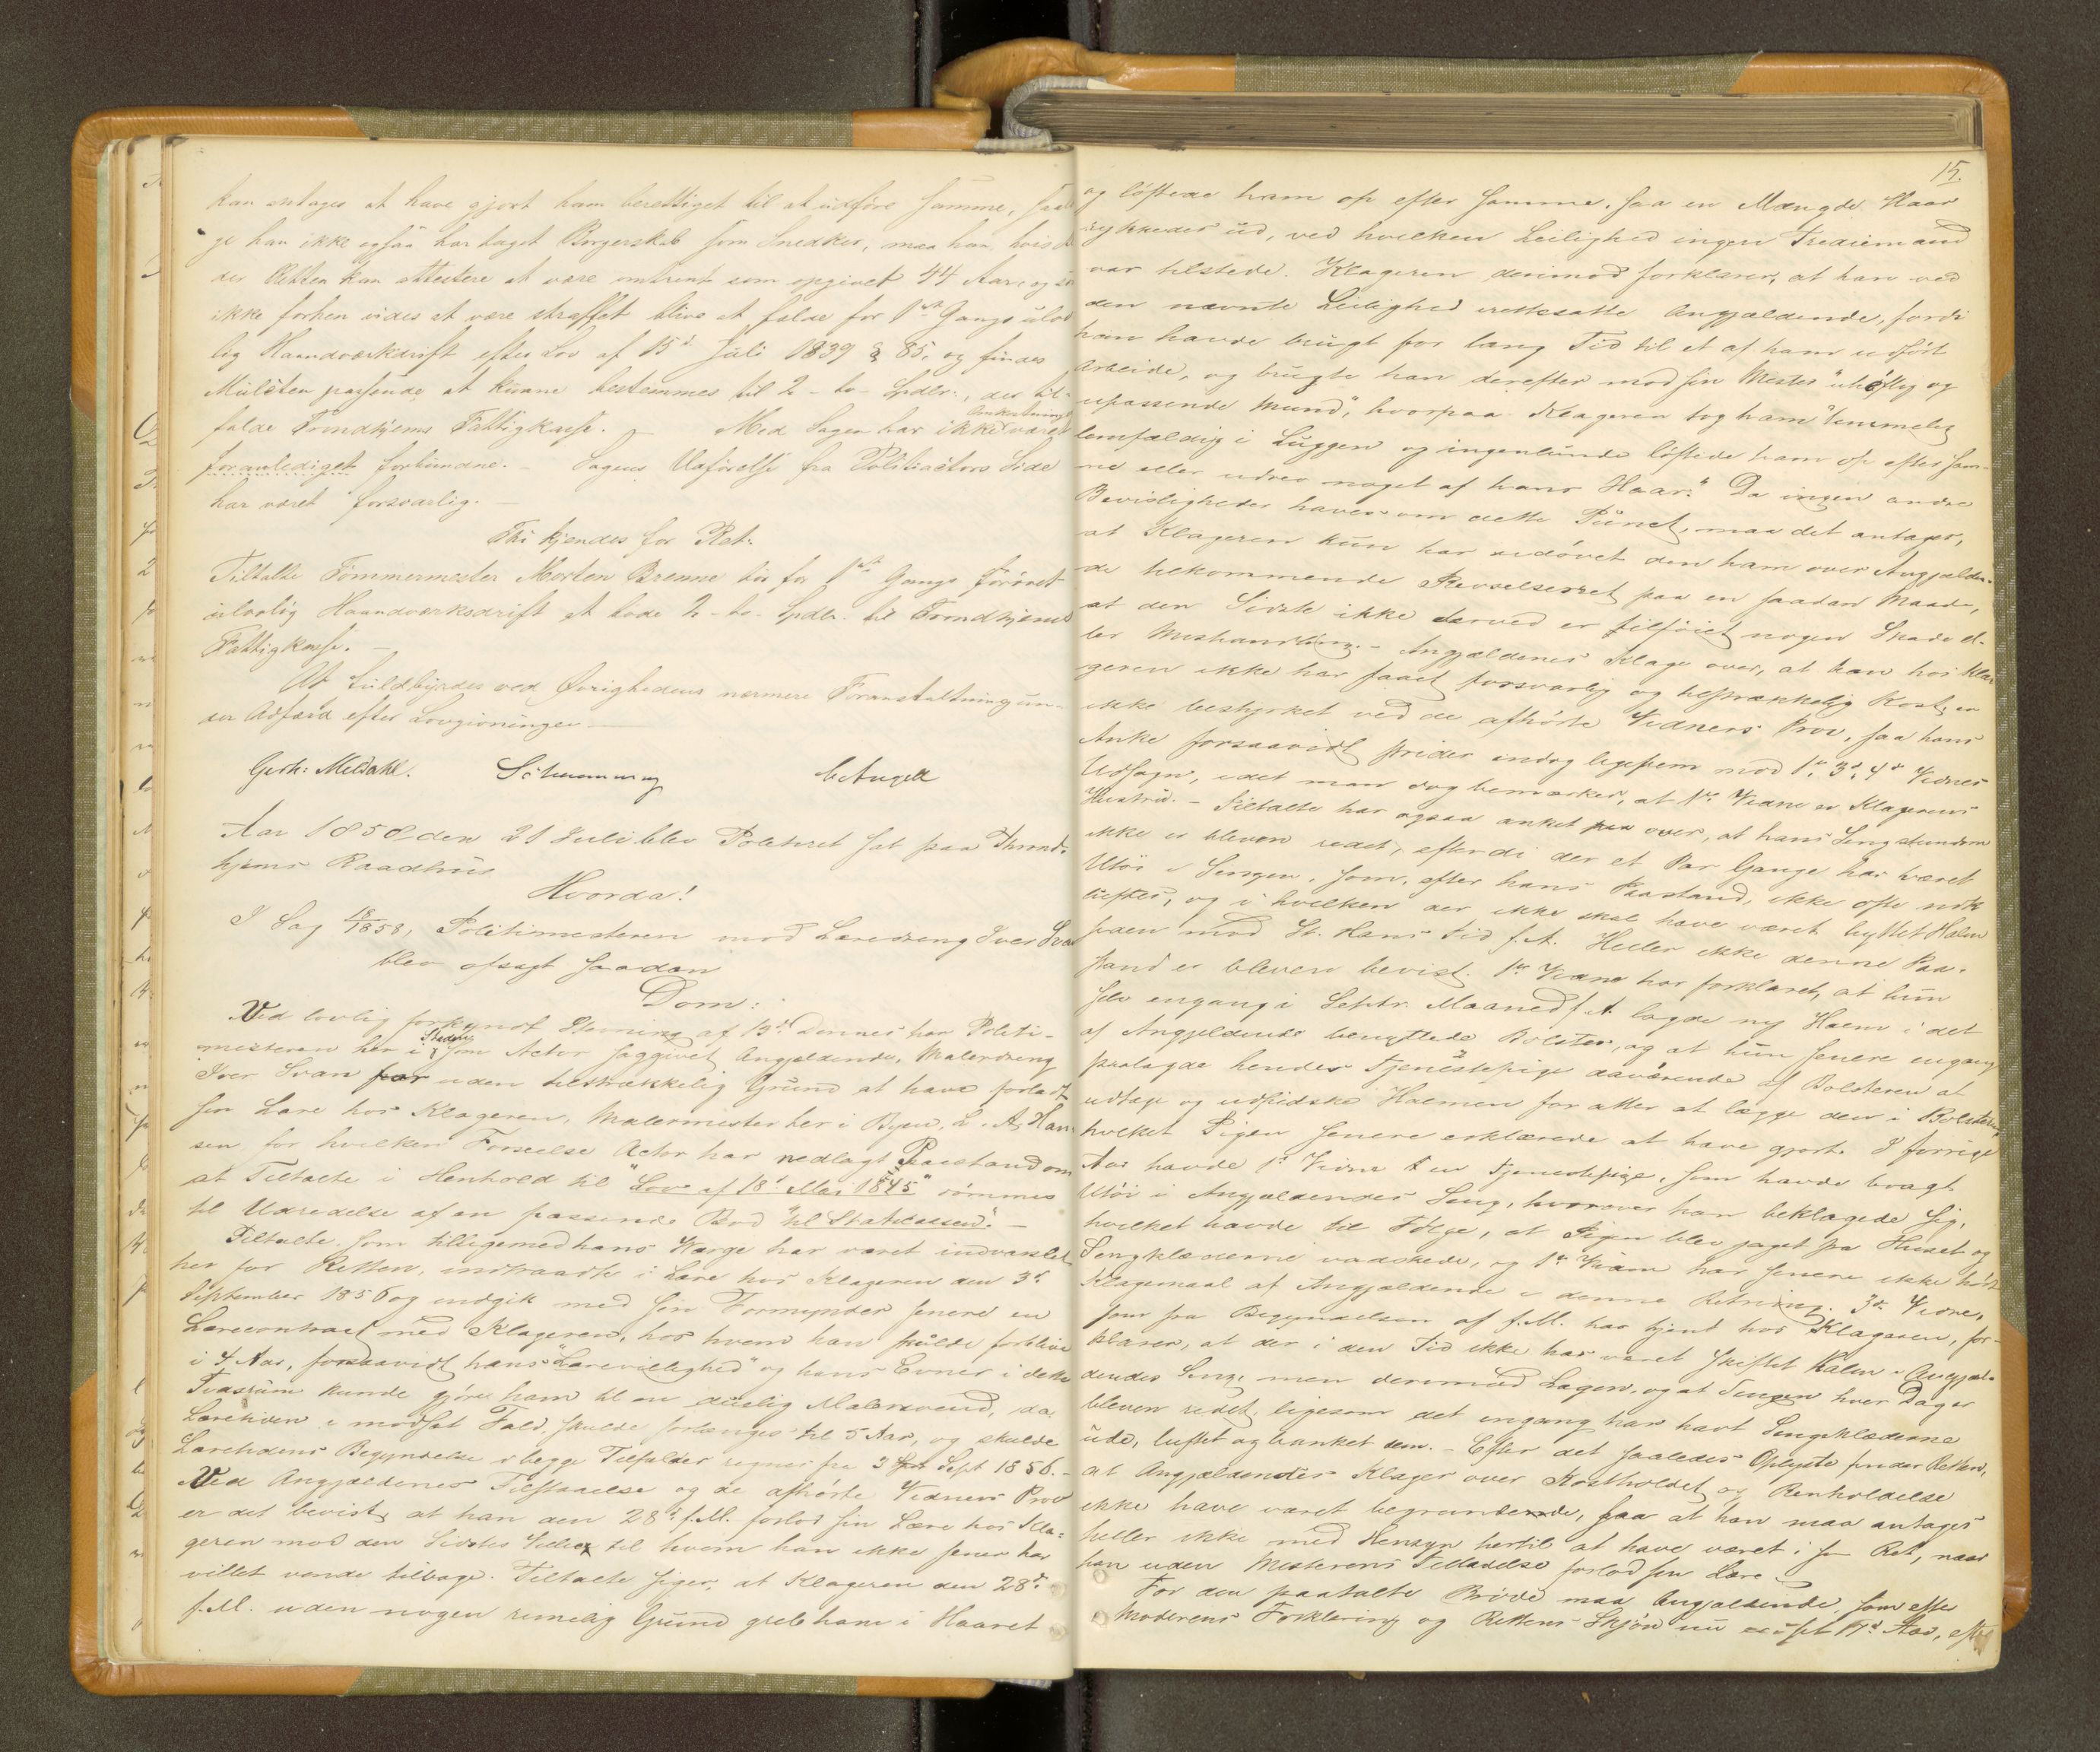 kan antages at have gjort ham berettiget til at udføre samme, saa
ge han ikke ogsaa har taget Borgerskab som Snedker, maa han, hvis
der Retten kan attestere at være omtrent som opgivet 44 Aar, og
ikke forhen vides at være straffet blive at fælde for 1ste Gangs ulov
lig Haandværksdrift efter Lov af 15de Juli 1839 § 85, og findes
Mulcten passende at kunne bestemmes til 2 - to - Spdlr., der til-
falde Trondhjems Fattigkasse. – Med Sagen har ikke Omkostninger været
foranlediget forbundne. – Sagens Udførelse fra Politiactors Side
har været forsvarlig. –
Thi kjendes for Ret:
Tiltalte Tømmermester Morten Brenne bør for 1ste Gangs forøvet
ulovlig Haandværksdrift at bøde 2 - to - Spdlr. til Trondhjems
Fattigkasse. –
At fuldbyrdes ved Øvrighedens nærmere Foranstaltning un-
der Adfærd efter Lovgivningen –
Gerh: Meldahl. Schwenning C Angell
Aar 1858 den 21 Juli blev Politiret sat paa Thrond-
hjems Raadhuus
Hvorda!
I Sag 18/1858, Politimesteren mod Læredreng Iver Svan
blev afsagt saadan
Dom:
Ved lovlig forkyndt Stevning af 13de dennes har Politi-
mesteren her i Staden som Actor saggivet Angjældende, Malerdreng
Iver Svan for uden tilstrækkelig Grund at have forladt
sin Lære hos Klageren, Malermester her i Byen, L. A. Han-
sen for hvilken Forseelse Actor har nedlagt Paastand om
at Tiltalte i Henhold til "Lov af 18de Mai 1845" dømmes
til Udredelse af en passende Bod "til Statskassen". –
Tiltalte som tilligemed hans Værge har været indvarslet
her for Retten, indtraadte i Lære hos Klageren den 3de
September 1856 og indgik med sin Formynder senere en
Lærecontract med Klageren, hos hvem han skulde forblive
i 4 Aar, forsaavidt hans "Lærevillighed" og hans Evner i dette
Tidsrum kunde gjøre ham til en duelig Malersvend, da
Læretiden i modsat Fald skulde forlænges til 5 Aar, og skulde
Læretidens Begyndelse i begge Tilfælder regnes fra 3 Sept 1856. –
Ved Angjældenes Tilstaaelse og de afhørte Vidners Prov
er det bevist, at han den 28de f.M. forlod sin Lære hos Kla-
geren mod den Sidstes Villie til hvem han ikke senere har
villet vende tilbage. Tiltalte siger, at Klageren den 28de
f.M. uden nogen rimelig Grund greb ham i Haaret
15.
og løftede ham op efter samme, saa en Mængde Haar
rykkedes ud, ved hvilken Leilighed ingen Trediemand
var tilstede. Klageren derimod forklarer, at han ved
den nævnte Leilighed irettesatte Angjældende, fordi
han havde brugt for lang Tid til et af ham udført
Arbeide, og brugte han derefter mod sin Mester "uhøflig og
upassende Mund", hvorpaa Klageren tog ham "temmelig
lemfældig i Luggen og ingenlunde løftede ham op efter sam-
me eller udrev noget af hans Haar." Da ingen andre
Bevisligheder haves om dette Punct, maa det antages,
at Klageren kun har udøvet den ham over Angjælden-
de tilkommende Revselsesret paa en saadan Maade,
at den Sidste ikke derved er tilføiet nogen Skade el-
ler Mishandling. – Angjældenes Klage over, at han hos Kla-
geren ikke har faaet forsvarlig og tilstrækkelig Kost, er
ikke bestyrket ved de afhørte Vidners Prov, saa hans
Anke forsaavidt strider endog ligefrem mod 1ste, 3de, 4de Vidnes
Udsagn, idet man dog bemærker, at 1ste Vidne er Klagerens
Hustru. – Tiltalte har ogsaa anket over, at hans Seng stundom
ikke er bleven redet, efterdi der et Par Gange har været
Utøi i Sengen, som, efter hans Paastand, ikke ofte nok
luftes, og i hvilken der ikke skal have været byttet Halm
siden mod St. Hans Tid f.A. Heller ikke denne Paa-
stand er bleven bevist. 1ste Vidne har forklaret, at hun
selv engang i Septr. Maaned f.A. lagde ny Halm i det
af Angjældende benyttede Bolster, og at hun senere engang
paalagde hendes Tjenestepige daværende af Bolsteren at
udtage og udpidske Halmen for atter at lægge den i Bolsteren,
hvilket Pigen senere erklærede at have gjort. I forrige
Aar havde 1ste Vidne en Tjenestepige, som havde bragt
Utøi i Angjældendes Seng, hvorover han beklagede sig,
hvilket havde til Følge, at Pigen blev jaget fra Huset og
Sengklæderne vaskede, og 1ste Vidne har senere ikke hørt
Klagemaal af Angjældende i denne Retning. 3de Vidne,
som fra Begyndelsen af f.M. har tjent hos Klageren, for-
klarer, at der i den Tid ikke har været skiftet Halm i Angjæl-
dendes Seng, men derimod Lagen, og at Sengen hver Dag er
bleven redet, ligesom det engang har havt Sengeklæderne
ude, luftet og banket dem. – Efter det saaledes Oplyste finder Retten,
at Angjældendes Klager over Kostholdet og Renholdelse
ikke have været begrundende, saa at han maa antages
heller ikke med Hensyn hertil at have været i sin Ret, naar
han uden Mesterens Tilladelse forlod sin Lære –
For den paatalte Brøde maa Angjældende, som efter
Moderens Forklaring og Rettens Skjøn nu er i sit 17de Aar, efter